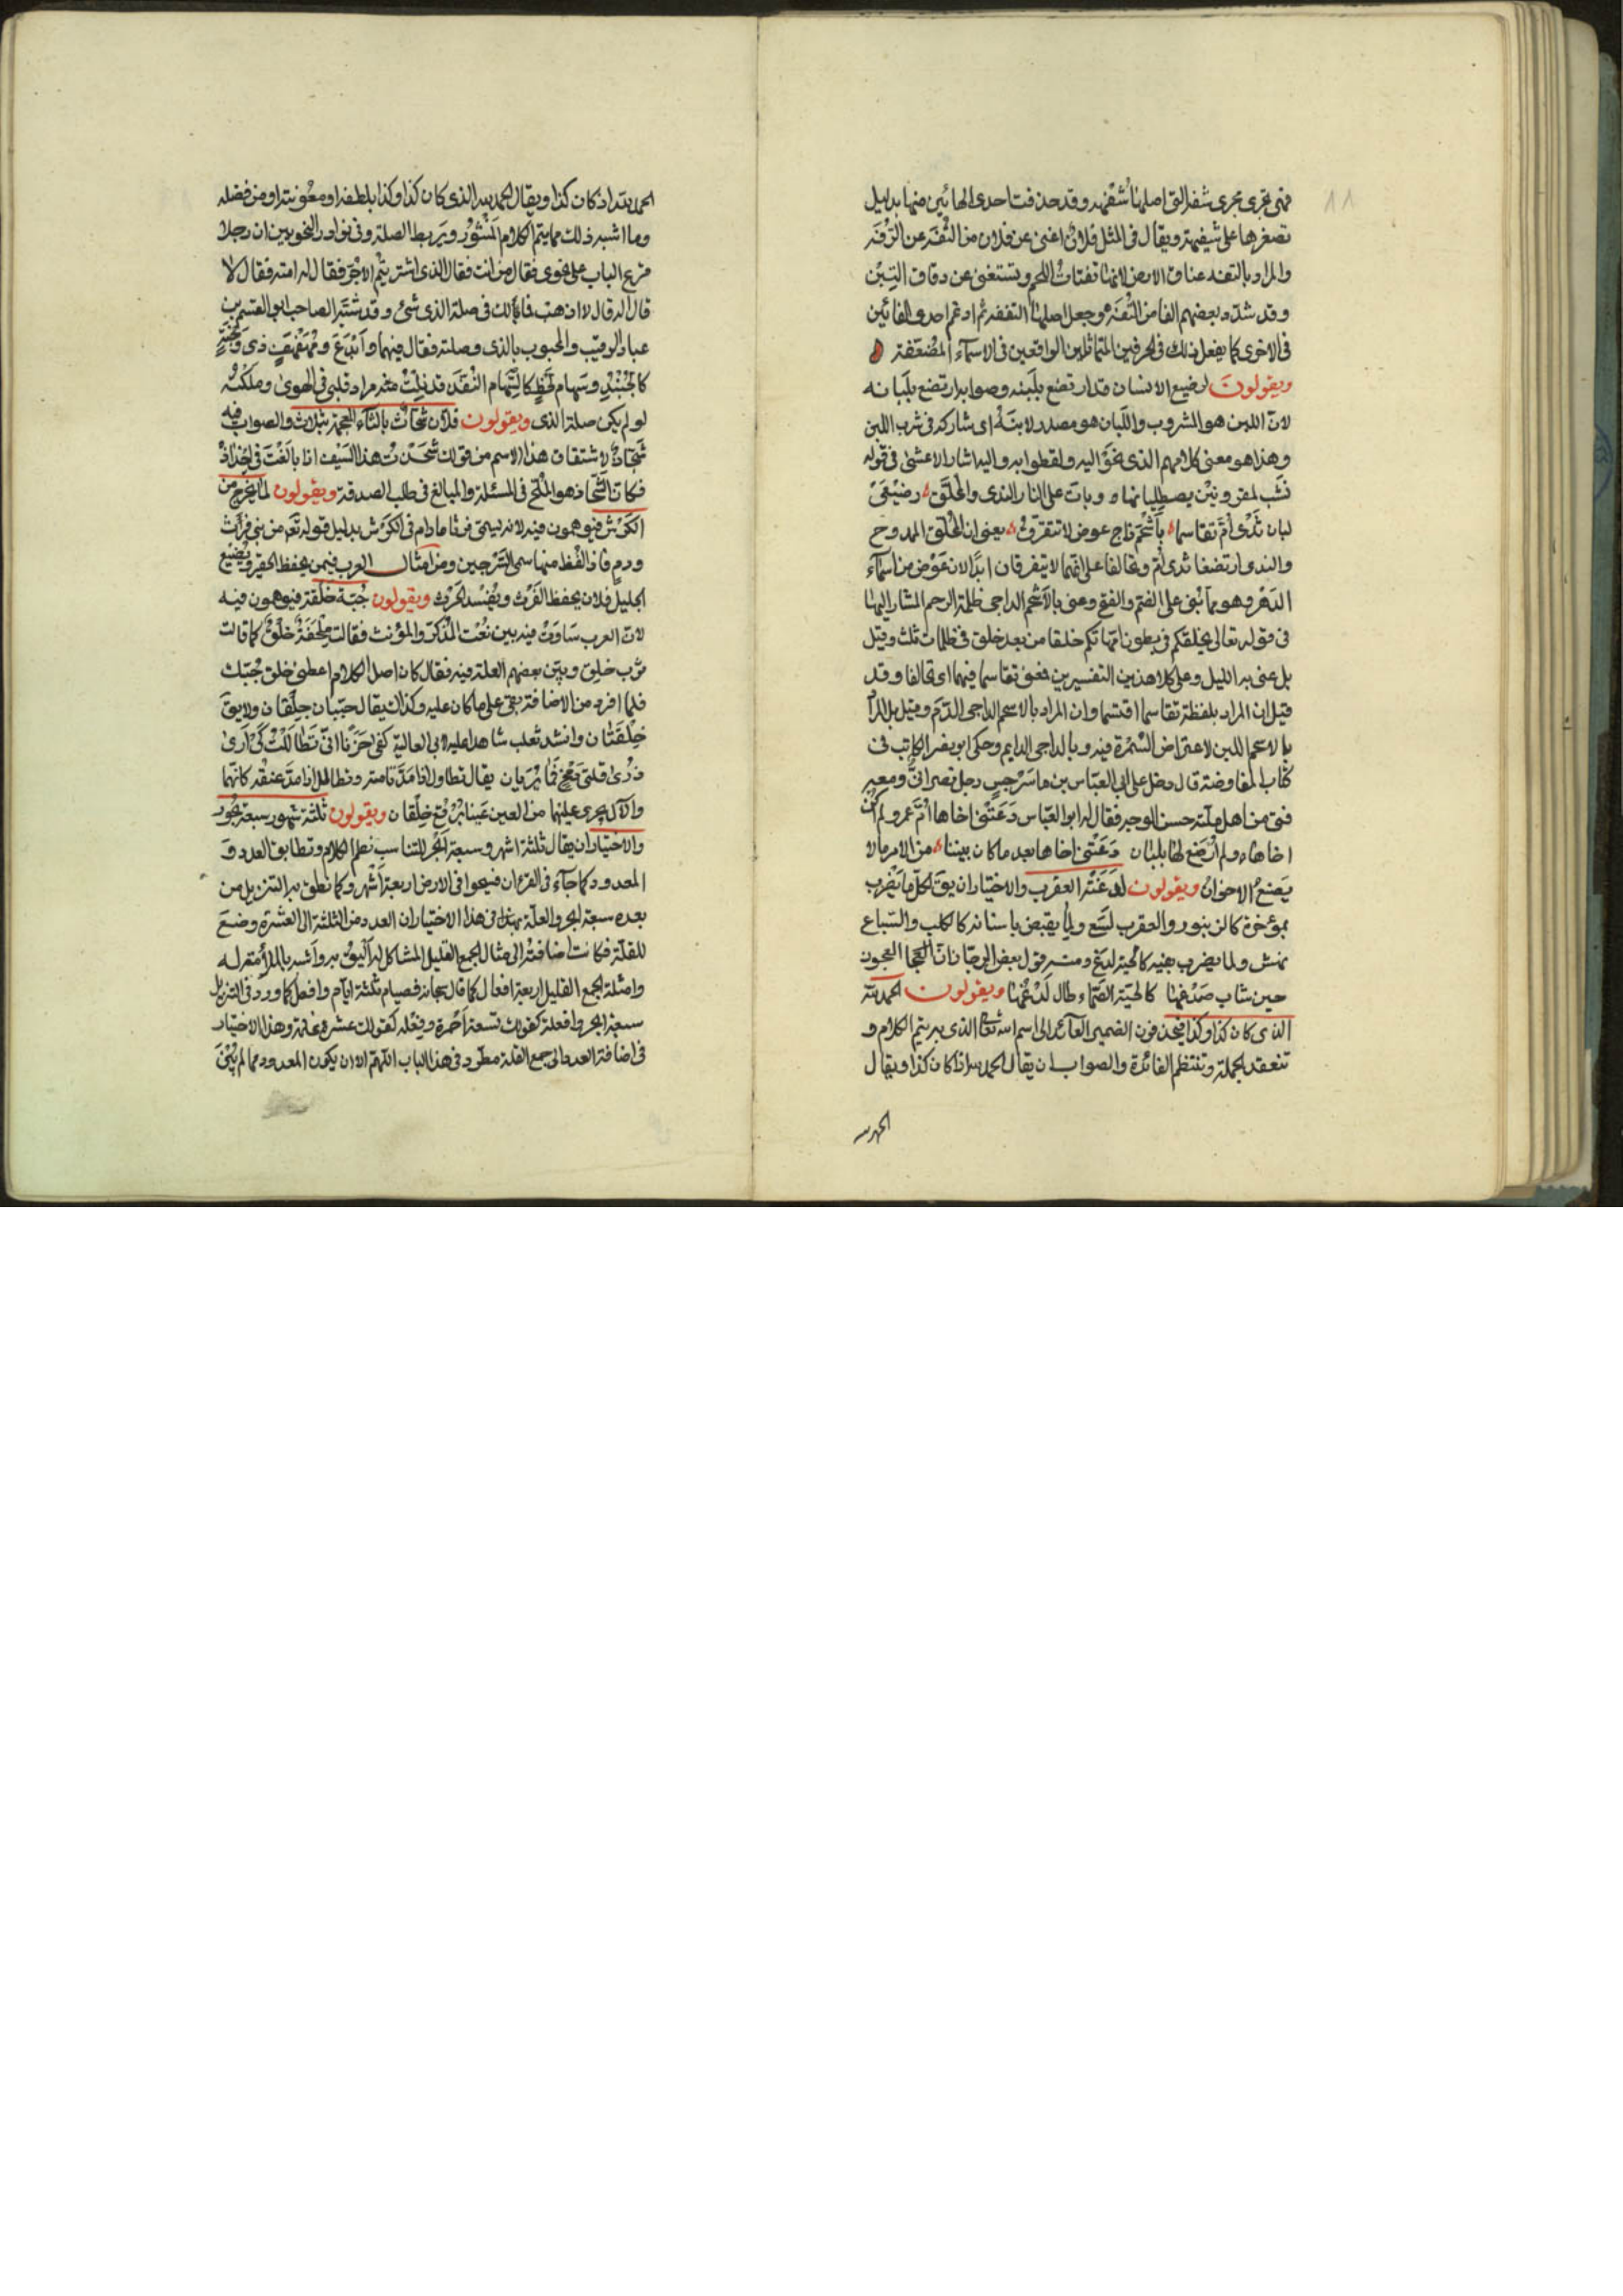 فهي تجرى مجرى شفة التي اصلها شفهه وقد حذفت احدى الهائين منها بدليل
تصغيرها على شفيهة ويقال في المثل فلان اغنى عن فلان من التفه عن الرفه
والمراد بالتفه عناق الارض لانها تقتات اللحم وتستغنى عن دقاق التبن
وقد شدد بعضهم الفا من التفه وجعل اصلها التففه ثم ادغم احدى الفائين
في الاخرى كما يفعل ذلك في الحرفين المتماثلين الواقعين في الاسماء المضعفة
ويقولون لرضيع الانسان قد ارتضع بلبنه وصوابه ارتضع بلبانه
لان اللبن هو المشروب واللبان هو مصدر لابنه اى شاركه في شرب اللبن
وهذا هو معنى كلامهم الذي نحوا اليه ولفظوا به واليه اشار الاعشى في قوله
تشب لمقرورين يصطليانها وبات على النار الندى والمحلق رضيعى
لبان ثدى ام تقاسما باسحم داج عوض لا نتفرق يعنى ان المحلق الممدوح
والندى ارتضعا ثدى ام وتحالفا على انهما لا يتفرقان ابدا لان عوض من اسماء
الدهر وهو مما بنى على الضم والفتح وعنى بالاسحم الداجى ظلمة الرحم المشار اليها
في قوله تعالى يخلقكم في بطون امهاتكم خلقا من بعد خلق في ظلمات ثلث وقيل
بل عنى به الليل وعلى كلا هذين التفسيرين فمعنى تقاسما فيهما اى تحالفا وقد
قيل ان المراد بلفظة تقاسما اقتسما وان المراد بالاسحم الداجى الدم وقيل بل المراد
بالاسحم اللبن لاعتراض السمرة فيه وبالداجى الدايم وحكى ابو نصر الكاتب في
كتاب المفاوضة قال دخل على ابي العباس بن ماسرجس رجل نصرانى ومعه
فتى من اهل ملته حسن الوجه فقال له ابو العباس دعتنى اخاها ام عمرو ولم اكن
اخاها ولم ارضع لها بلبان دعتنى اخاها بعد ما كان بيننا من الامر ما لا
يصنع الاخوان ويقولون لدغته العقرب والاختيار ان يق لكل ما يضرب
بمؤخره كالزنبور والعقرب لسع ولما يقبض باسنانه كالكلب والسباع
نهش ولما يضرب بفيه كالحية لدغ ومنه قول بعض الرجاز
حين شاب صدغها كالحية الصماء طال لدغها ويقولون الحمد لله
الذى كان كذا وكذا فيحذفون الضمير العائد الى اسم الله تعالى الذى به يتم الكلام و
تنعقد الجملة وتنتظم الفائدة والصواب ان يقال الحمد لله اذ كان كذا ويقال
الحمد لله
الحمد لله اذ كان كذا ويقال الحمد لله الذى كان كذا وكذا بلطفه او معونته او من فضله
وما اشبه ذلك مما يتم الكلام المنثور ويربط الصلة وفى نوادر النحويين ان رجلا
قرع الباب على نحوى فقال من انت فقال الذى اشتريتم الاجر فقال له امنه فقال لا
قال اله قال لا اذهب فما لك في صلة الذى شئ وقد شبه الصاحب ابو القسم بن
عباد الرقيب والمحبوب بالذى وصلته فقال فيهما وابدع ومهفهف ذى وجنة
كالجلنار وسهام لحظ كالسهام النفذ قد نلت منه مراد قلبى في الهوى وملكته
لو لم يكن صلة الذى ويقولون فلان شحاث بالثاء المعجمة بثلاث والصواب فيه
شحاذ لاشتقاق هذا الاسم من قولك شحذت هذا السيف اذا بالغت في احداده
فكان الشحاذ هو الملح في المسئلة والمبالغ في طلب الصدقة ويقولون لما يخرج من
الكرش فيوهمون فيه لانه يسمى فرثا ما دام في الكرش بدليل قوله تعه من بين فرث
ودم فاذا لفظ منها سمى السرجين ومن امثال العرب فيمن يحفظ الحقير ويضيع
الجليل فلان يحفظ الفرث ويفسد الحرث ويقولون جبة خلقة فيوهمون فيه
لان العرب ساوت فيه بين نعت المذكر والمؤنث فقالت ملحفة خلق كما قالت
ثوب خلق وبين بعضهم العلة فيه فقال كان اصل الكلام اعطنى خلق جبتك
فلما افرد من الاضافة بقى على ما كان عليه وكذلك يقال جبتان خلقان ولا يق
خلقتان وانشد ثعلب شاهدا عليه لابي العالية كفى حزنا انى تطاللت كى ارى
ذرى قلتى دمخ فما تريان يقال تطاول اذا مد قامته وتطالل اذا مد عنقه كانهما
والآل يجرى عليهما من العين عينا برقع خلقان ويقولون ثلثة شهور سبعة بحور
والاختيار ان يقال ثلثة اشهر وسبعة ابحر للتناسب نظم الكلام وتطابق العدد و
المعدود كما جآء فى القران فسيحوا فى الارض اربعة اشهر وكما نطق به التنزيل من
بعده سبعة ابحر والعلة فى هذا الاختيار ان العدد من الثلثة الى العشرة وضع
للقلة فكانت اضافته الى مثال الجمع القليل المشاكل له اليق به واشبه بالملائمة له
وامثلة الجمع القليل اربعة افعال كما قال سبحانه فصيام ثلثة ايام وافعل كما ورد فى التنزيل
سبعة ابحر وافعلة كقولك تسعة احمرة وفعلة كقولك عشرة غلمة وهذا الاختيار
فى اضافة العدد الى جمع القلة مطرد في هذا الباب اللهم الا ان يكون المعدود مما لم يبن